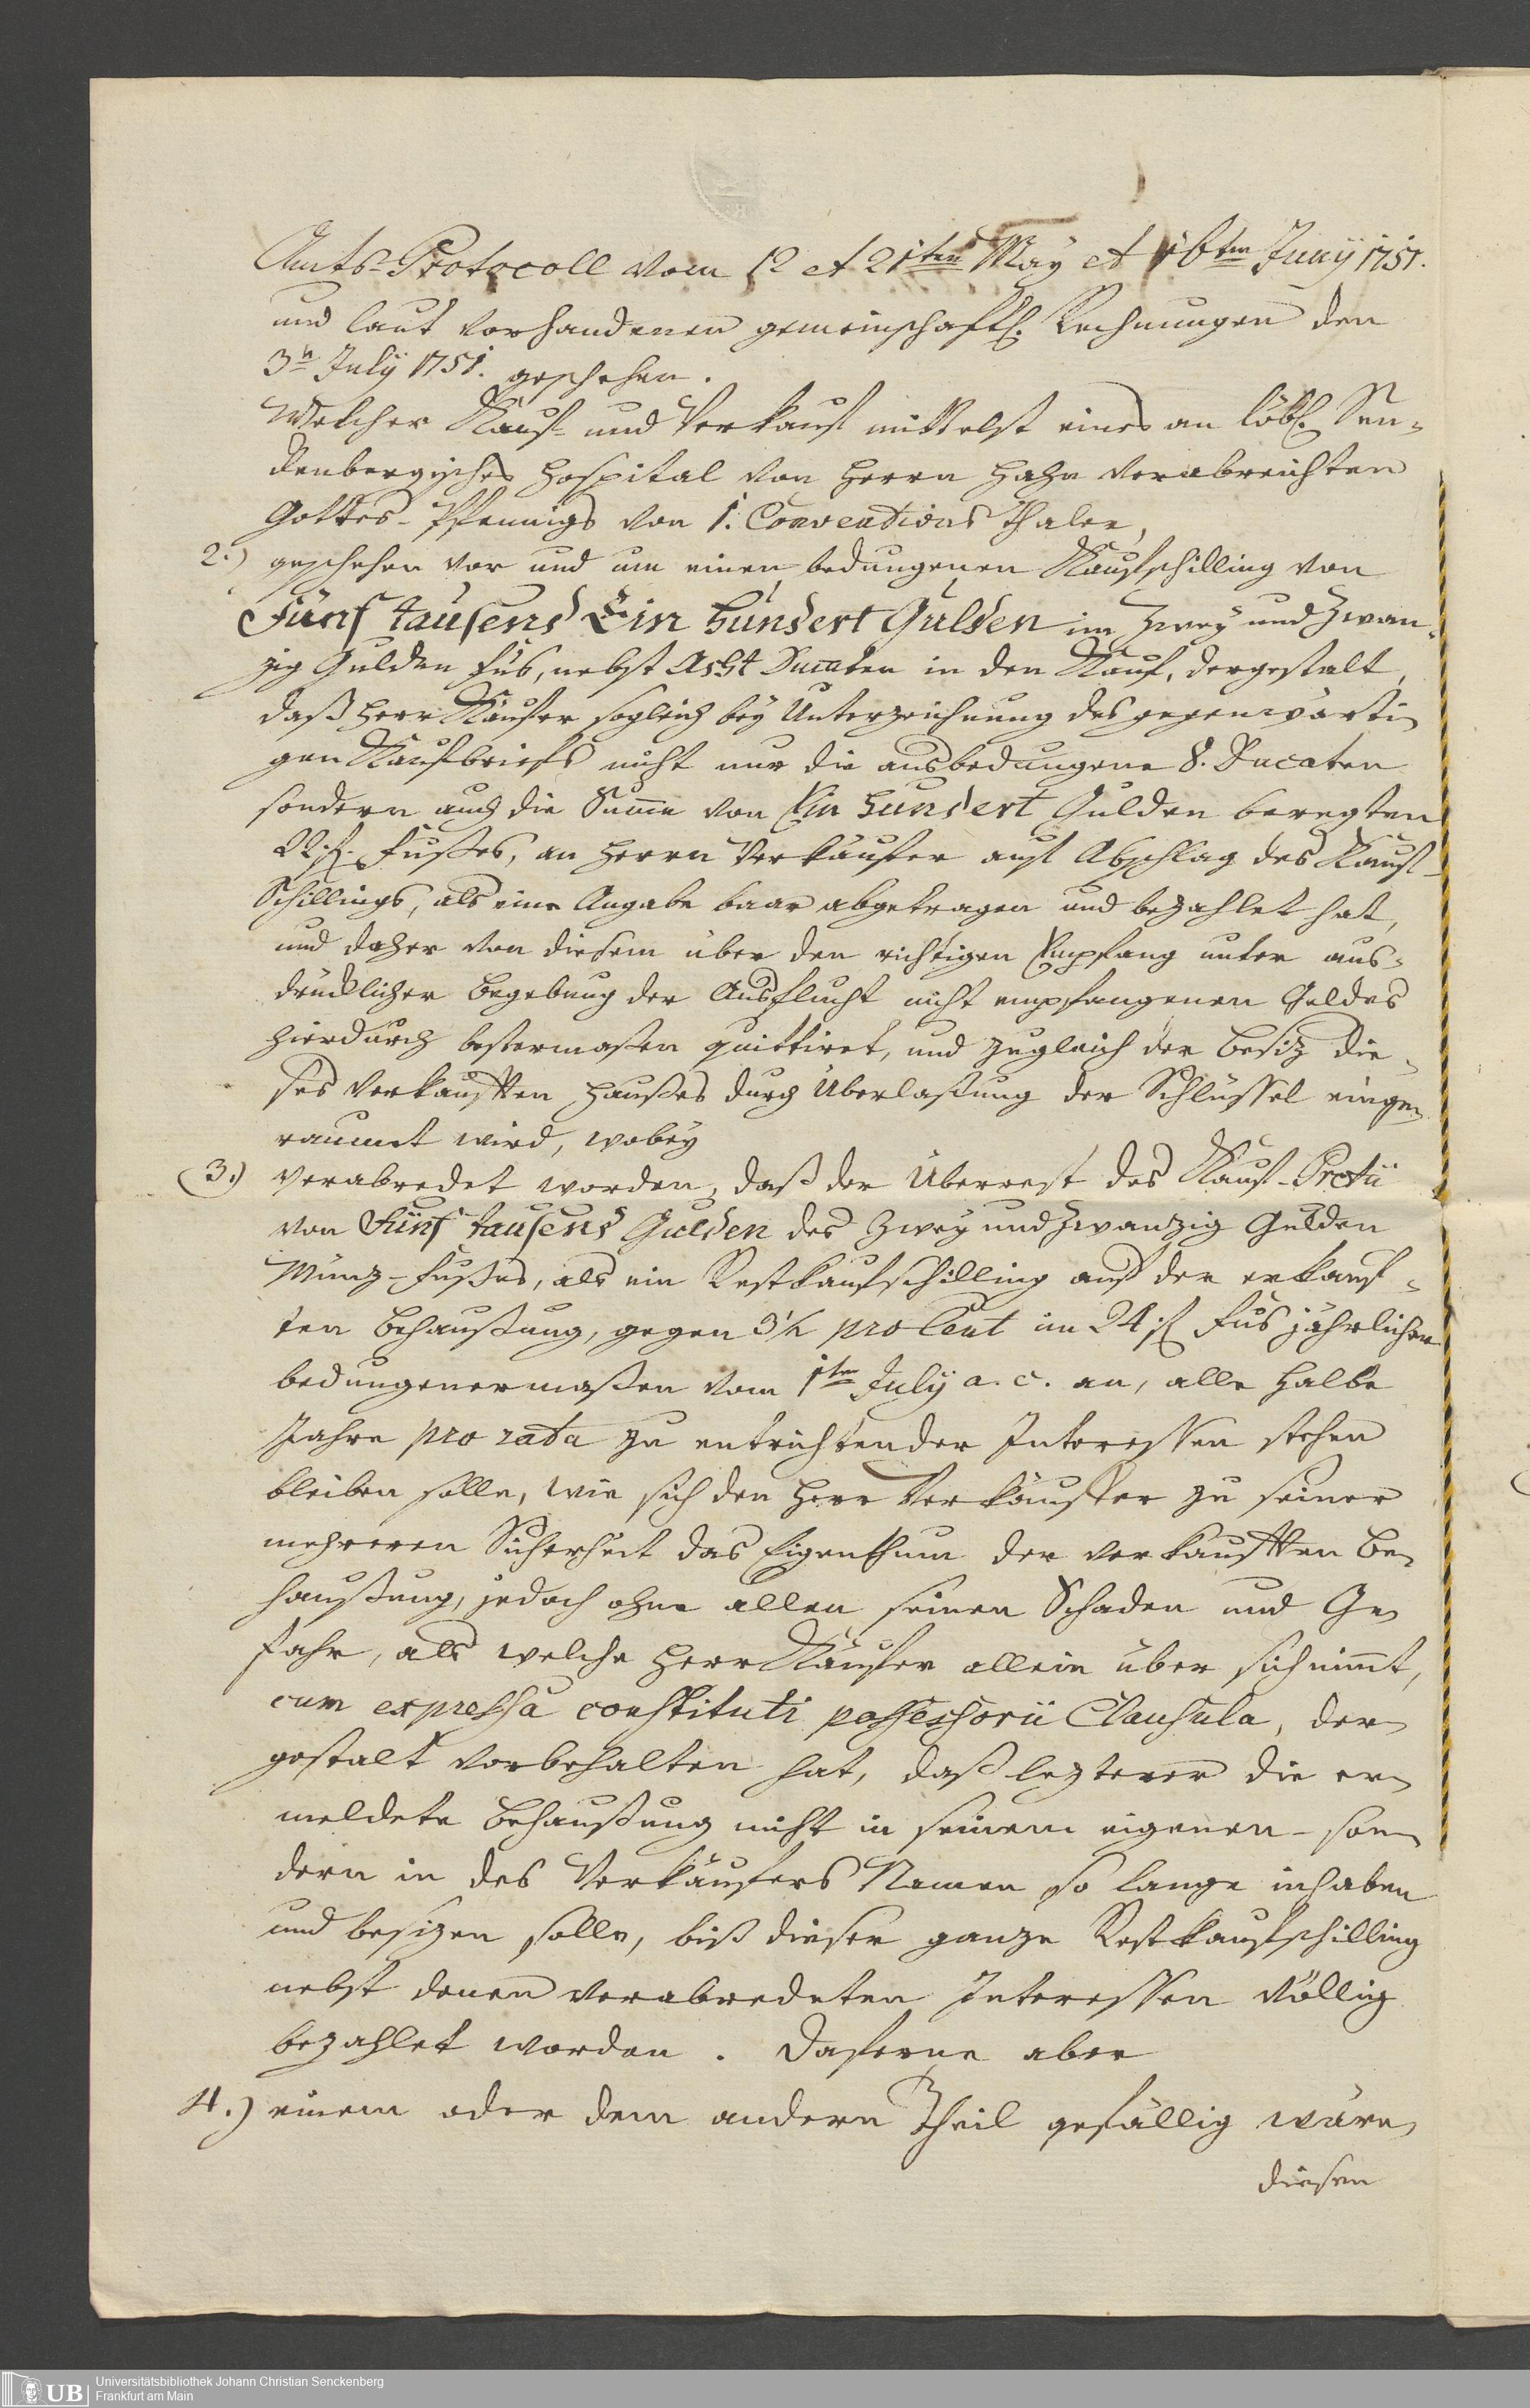 Amts-Protocoll vom 12 et 21ten May et 16ten Juny 1751.
und laut vorhandenen gemeinschaftl. Rechnungen den
3n July 1751. geschehen.
Welcher Kauf- und Verkauf mittelst eines an löbl. Sen-
ckenbergisches Hospital von Herrn Hahn verabreichten
Gottes-Pfennigs von 1. Conventions Thaler,
2.) geschehen vor und um einen bedungenen Kaufschilling von
Fünf tausend Ein hundert Gulden im Zwey und Zwan-
zig Gulden Fus, nebst Acht Ducaten in den Kauf, dergestalt,
daß Herr Käufer sogleich bey Unterzeichnung des gegenwärti-
gen Kaufbriefs nicht nur die ausbedungene 8. Ducaten
sondern auch die Summe von Ein hundert Gulden beregten
22. f. Fußes, an Herrn Verkäufer auf Abschlag des Kauf-
Schillings, als eine Angabe baar abgetragen und bezahlet hat,
und daher von diesem über den richtigen Empfang unter aus-
drücklicher Begebung der Ausflucht nicht empfangenen Geldes
hierdurch bestermaßen quittiret, und zugleich der Besitz die-
ses verkauften Haußes durch Überlaßung der Schlüssel einge-
raumet wird, wobey
3.) verabredet worden, daß der Überrest des Kauf-Pretii
von Fünf tausend Gulden des Zwey und Zwanzig Gulden
Münz-Fußes, als ein Restkaufschilling auf der erkauf-
ten Behaußung, gegen 3½ pro Cent im 24 f Fus jährlicher
bedungenermaßen vom 1ten July a. c. an, alle halbe
Jahre pro rata zu entrichtender Interessen stehen
bleiben solle, wie sich den Herr Verkäuffer zu seiner
mehreren Sicherheit das Eigenthum der verkauften Be-
haußung, jedoch ohne allen seinen Schaden und Ge-
fahr, als welche Herr Käufer allein über sich nimmt,
cum expressa constituti possessorii Clausula, der-
gestalt vorbehalten hat, daß lezterer die er-
meldete Behaußung nicht in seinem eigenen- son-
dern in des Verkäufers Namen so lange inhaben
und besizen solle, biß dieser ganze Restkaufschilling
nebst denen verabredeten Interessen völlig
bezahlet worden. Daferne aber
4.) einem oder dem andern Theil gefällig wäre,
diesen
UB
Universitätsbibliothek Johann Christian Senckenberg
Frankfurt am Main